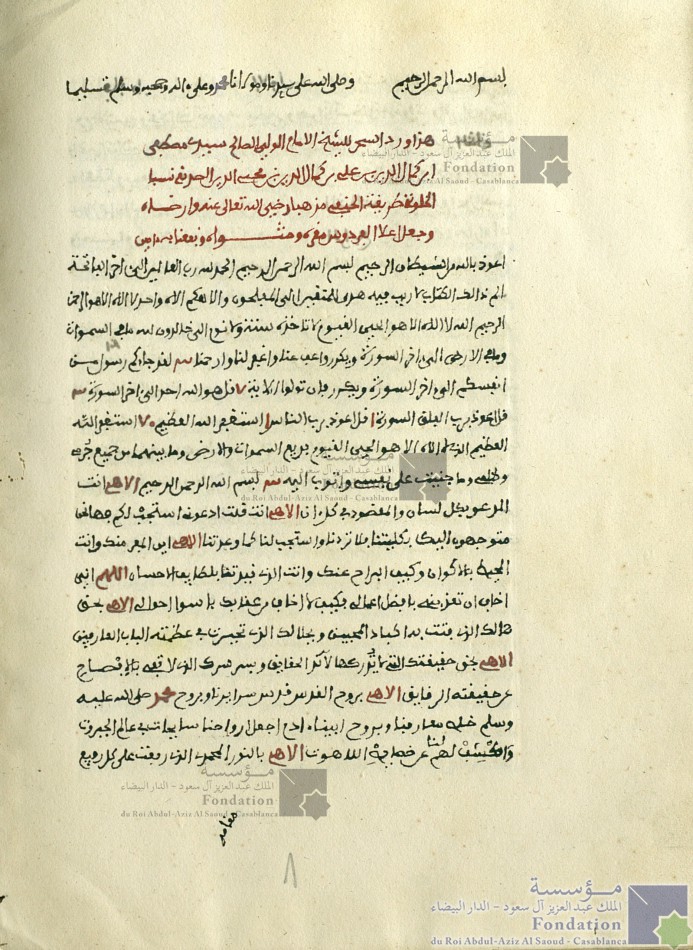 بسم الله الرحمن الرحيم وصلى الله على سيدنا ومولانا محمد وعلى ءاله وصحبه وسلم تسليما
هذا ورد السحر للشيخ الامام الولي الصالح سيدي مصطفى
ابن كمال الدين بن علي بن كمال الدين بن محيي الدين الصديقي نسبا
الخلوتي طريقة الحنفي مذهبا رضي الله تعالى عنه وارضاه
وجعل اعلا الفردوس مقره ومثواه ونفعنا به امين
اعوذ بالله من الشيطان الرجيم بسم الله الرحمن الرحيم الحمد لله رب العالمين الى اخر الفاتحة
الم ذالك الكتاب لا ريب فيه هدى للمتقين الى المفلحون والاهكم الاه واحد لا الاه الا هو الرحمن
الرحيم الله لا الاه الا هو الحي القيوم لا تاخذه سنة ولا نوم الى خالدون لله ما في السموات
وما في الارض الى اخر السورة ويكرر واعف عنا واغفر لنا وارحمنا لقد جاءكم رسول من
انفسكم الى اخر السورة ويكرر فان تولوا الاية ٧ قل هو الله احد الى اخر السورة
قل اعوذ برب الفلق السورة ا قل اعوذ برب الناس ا استغفر الله العظيم ٧٠ استغفر الله
العظيم الذي لا الاه الا هو الحي القيوم بديع السموات والارض وما بينهما من جميع جرمي
وظلمي وما جنيت على نفسي واتوب اليه بسم الله الرحمن الرحيم الاهي انت
المدعو بكل لسان والمقصود في كل ان الاهي انت قلت ادعوني استجب لكم فها نحن
متوجهون اليك بكليتنا فلا تردنا واستجب لنا كما وعدتنا الاهي اين المفر منك وانت
المحيط بالاكوان وكيف البراح عنك وانت الذي قيدتنا بلطايف الاحسان اللهم اني
اخاف ان تعذبني بافضل اعمالي فكيف لا اخاف من عقابك باسوا احوالي الاهي بحق
جمالك الذي فتت به اكباد المحبين وبجلالك الذي تحيرت في عظمته الباب العارفين
الاهي بحق حقيقتك التي لا تدركها الحقايق وبسر سرك الذي لا تفي بالافصاح
عن حقيقته الرقايق الاهي بروح القدس قدس سرايرنا وبروح محمد صلى الله عليه
وسلم خلص معارفنا وبروح ابينا ادم اجعل ارواحنا سابحات في عالم الجبروت
واكشف لهم عن حضاير اللاهوت الاهي بالنور المحمدي الذي رفعت على كل رفيع
مقامه
٨
مؤسسة
الملك عبد العزيز آل سعود - الدار البيضاء
Fondation
du Roi Abdul-Aziz Al Saoud - Casablanca